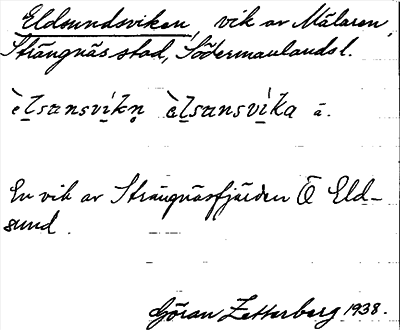 Eldsundsviken, vik av Mälaren,
Strängnäs stad, Södermanlands l.
èlsansvíkn̥ èlsansvíka ä.
En vik av Strängnäsfjärden Ö Eld-
sund.
Göran Zetterberg 1938.